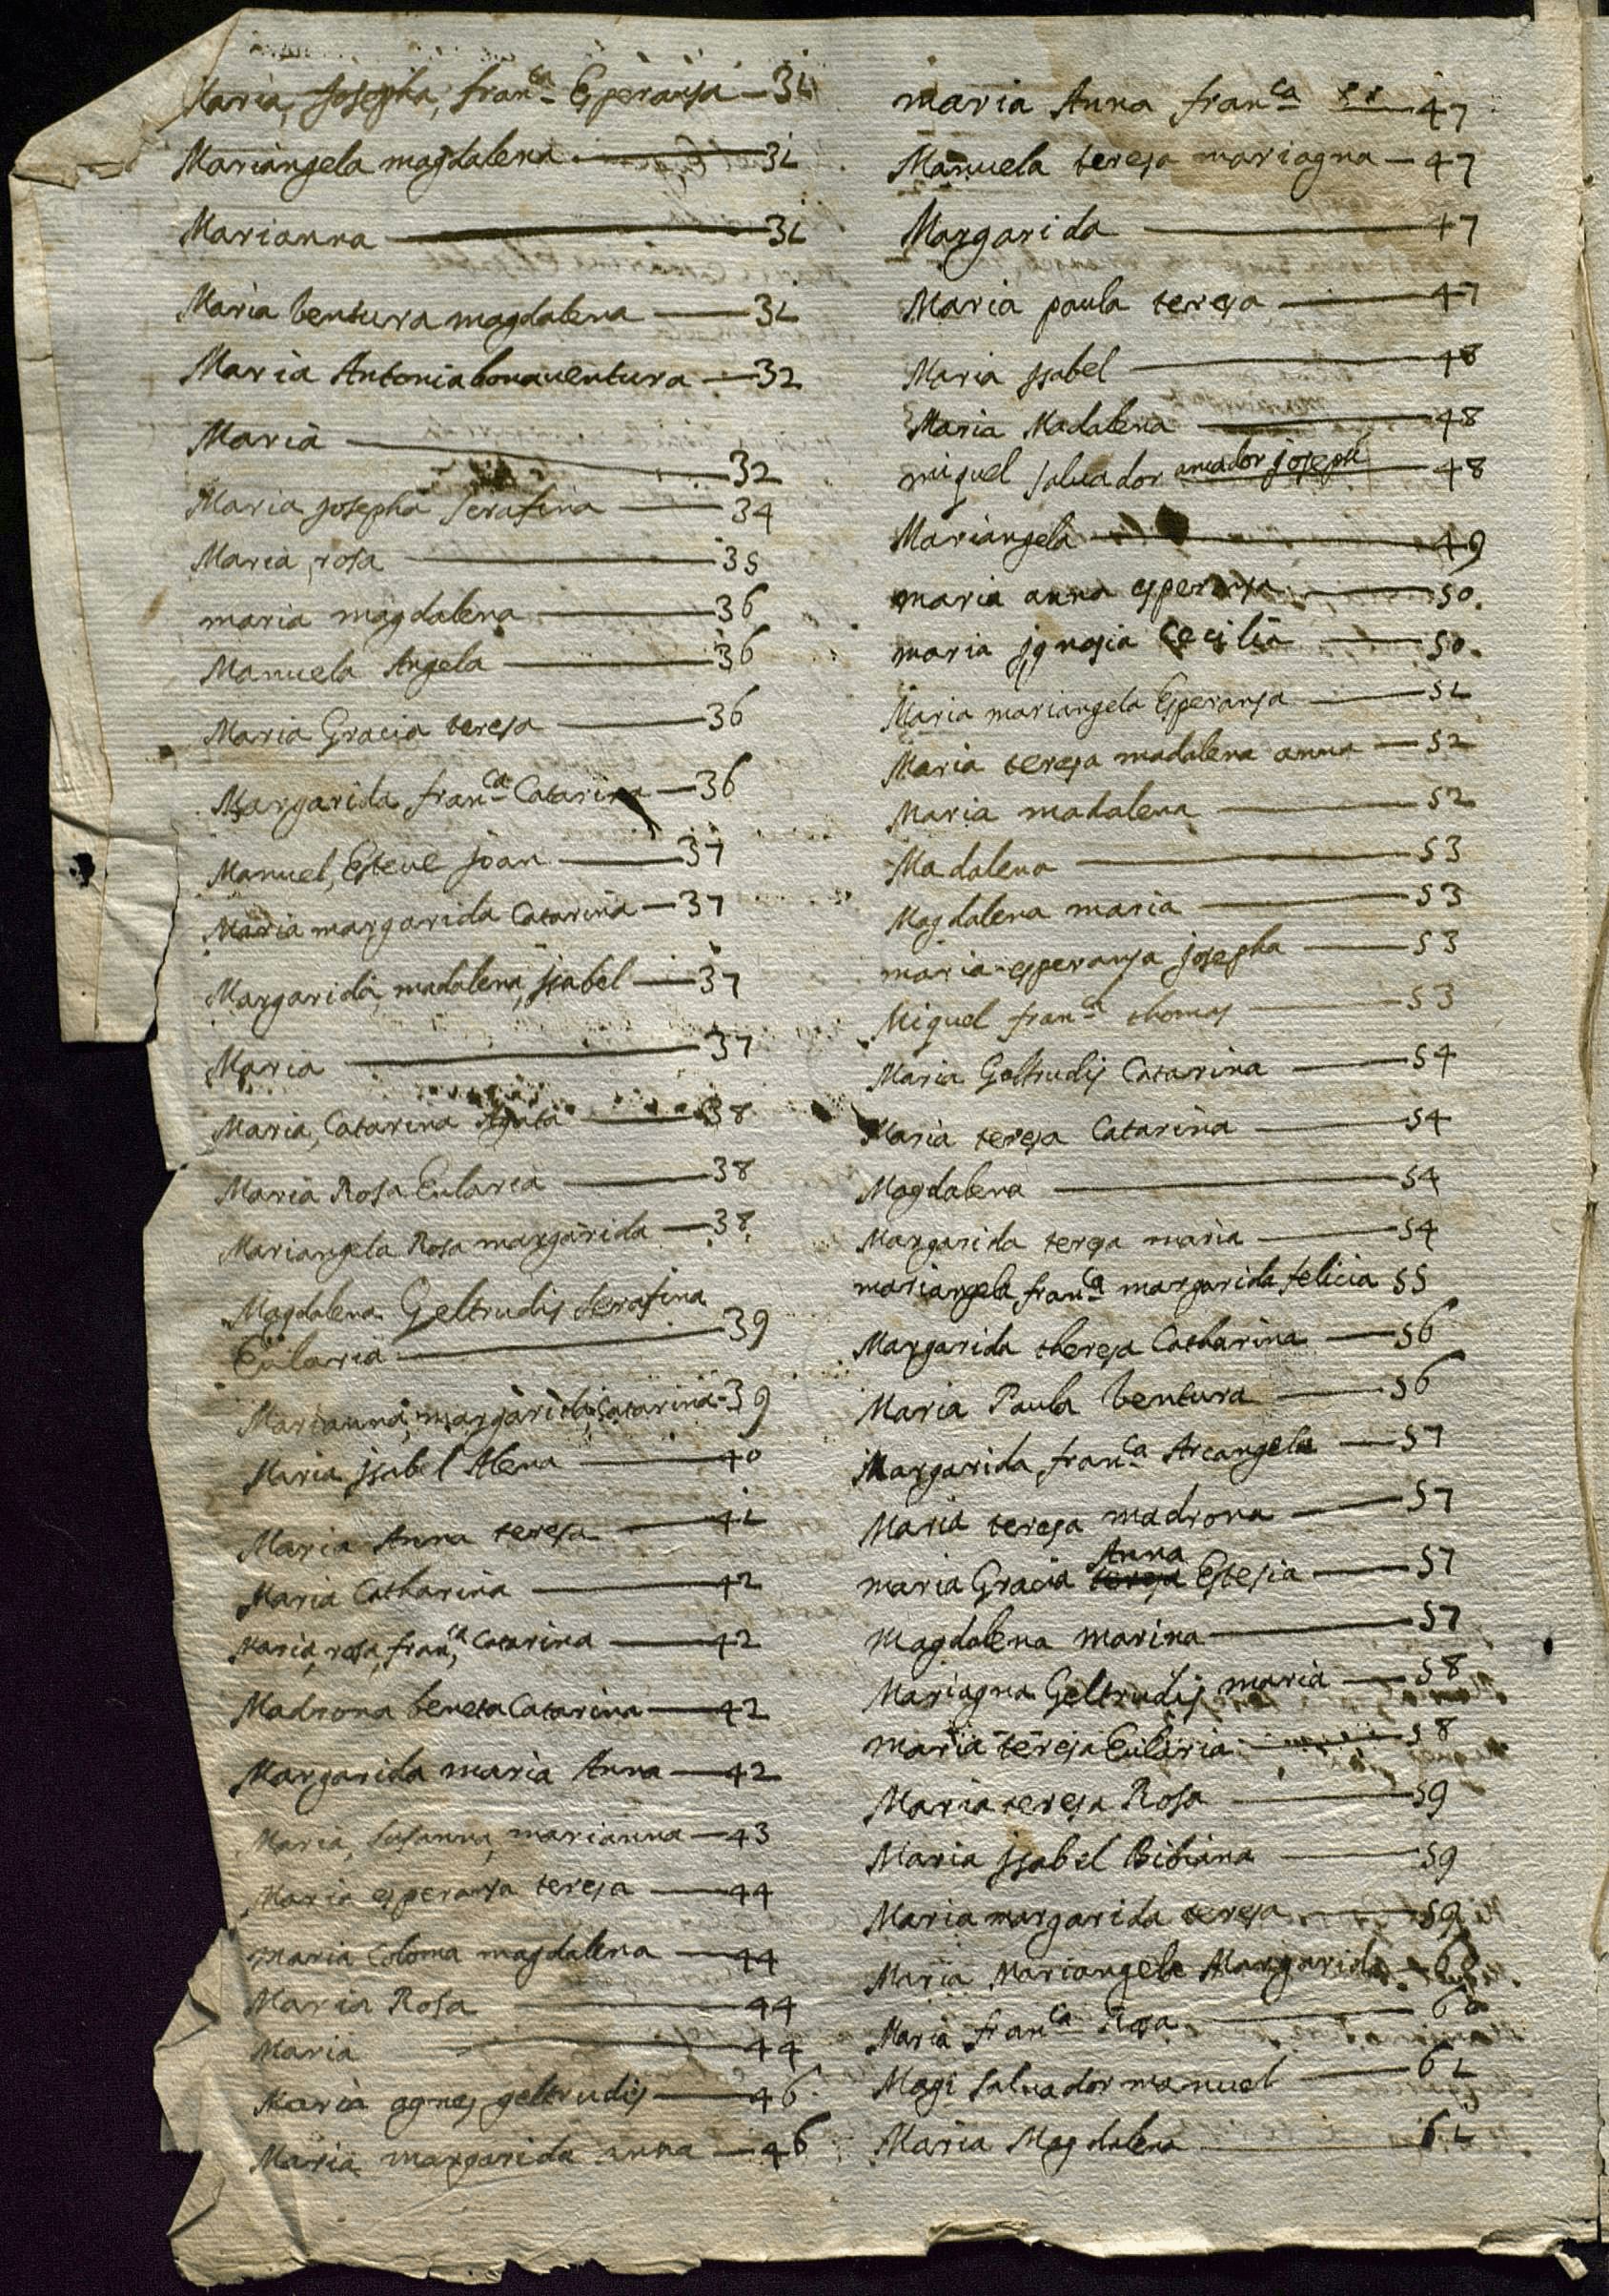 Maria, Josepha, fran.ca Esperansa — 31
Mariangela magdalena — 31
Marianna — 31
Maria ventura magdalena — 31
Maria Antonia bonaventura — 32
Maria — 32
Maria josepha serafina — 34
Maria, rosa — 35
maria magdalena — 36
Manuela Angela — 36
Maria Gracia teresa — 36
Margarida fran.ca Catarina — 36
Manuel, Esteve joan — 37
Maria margarida Catarina — 37
Margarida, madalena, jsabel — 37
Maria — 37
Maria, Catarina Agata — 38
Maria Rosa Eularia — 38
Mariangela Rosa margarida — 38
Magdalena Geltrudis serafina
Eularia — 39
Marianna, margarida, Catarina - 39
Maria jsabel Alena — 40
Maria Anna teresa — 41
Maria Catharina — 42
Maria, rosa, fran.ca, Catarina — 42
Madrona beneta Catarina — 42
Margarida maria Anna — 42
Maria, susanna, marianna — 43
Maria esperansa teresa — 44
Maria Coloma magdalena — 44
Maria Rosa — 44
Maria — 44
Maria agnes geltrudis — 46
Maria margarida anna — 46
maria Anna fran.ca — 47
Manuela teresa mariagna — 47
Margarida — 47
Maria paula teresa — 47
Maria jsabel — 48
Maria Madalena — 48
miquel salvador amador joseph — 48
Mariangela — 49
maria anna esperansa — 50.
maria jgnasia Cecilia — 50.
Maria mariangela Esperansa — 51
Maria teresa madalena anna — 52
Maria madalena — 52
Madalena — 53
Magdalena maria — 53
maria esperansa josepha — 53
Miquel fran.ch thomas — 53
Maria Geltrudis Catarina — 54
Maria teresa Catarina — 54
Magdalena — 54
Margarida teresa maria — 54
mariangela fran.ca margarida felicia 55
Margarida theresa Catharina — 56
Maria Paula ventura — 56
Margarida fran.ca Arcangela — 57
Maria teresa madrona — 57
Anna
maria Gracia teresa Estesia — 57
Magdalena marina — 57
Mariagna Geltrudis maria — 58
maria teresa Eularia — 58
Maria teresa Rosa — 59
Maria jsabel Bibiana — 59
Maria margarida teresa — 59
Maria Mariangela Margarida - 60
Maria fran.ca Rosa — 60
Magi salvador manuel — 61
Maria Magdalena — 61